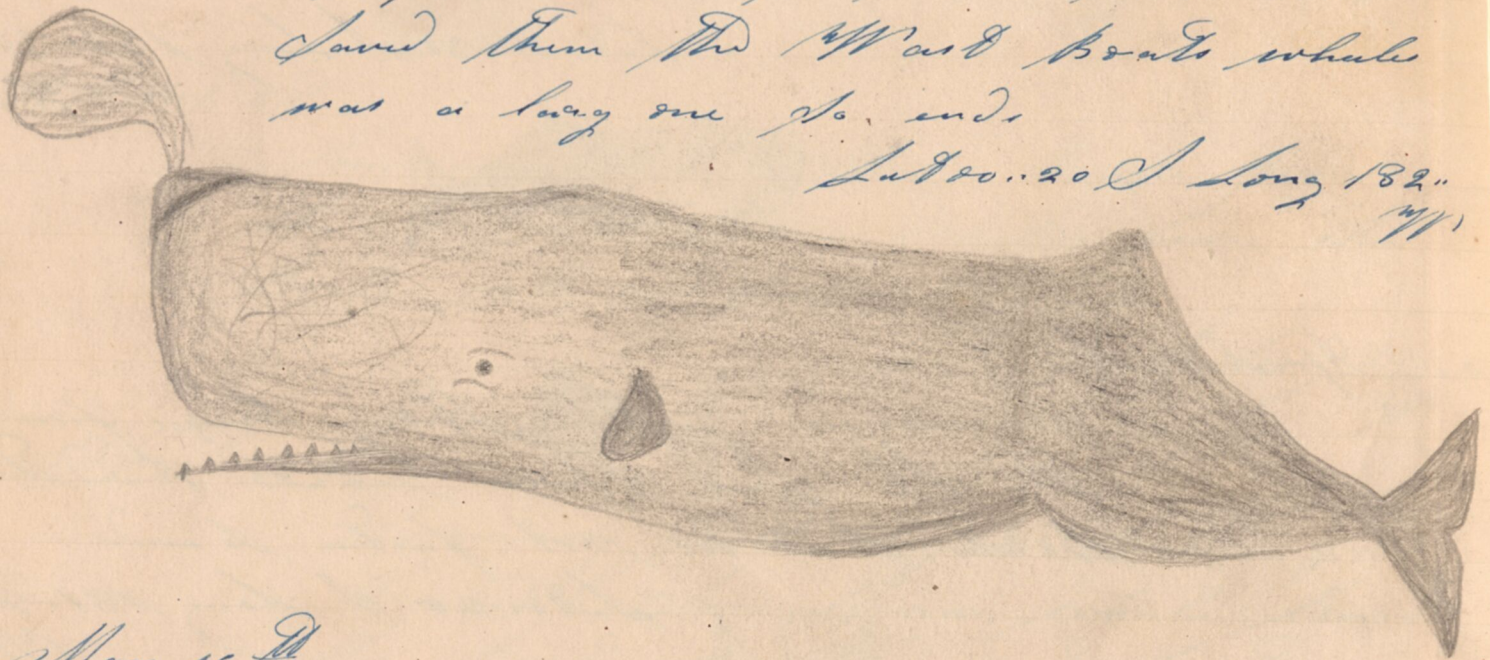 Saved them the Wast Boats whales
was a larg one So ends
Lat 30..20 S Long 182..
W